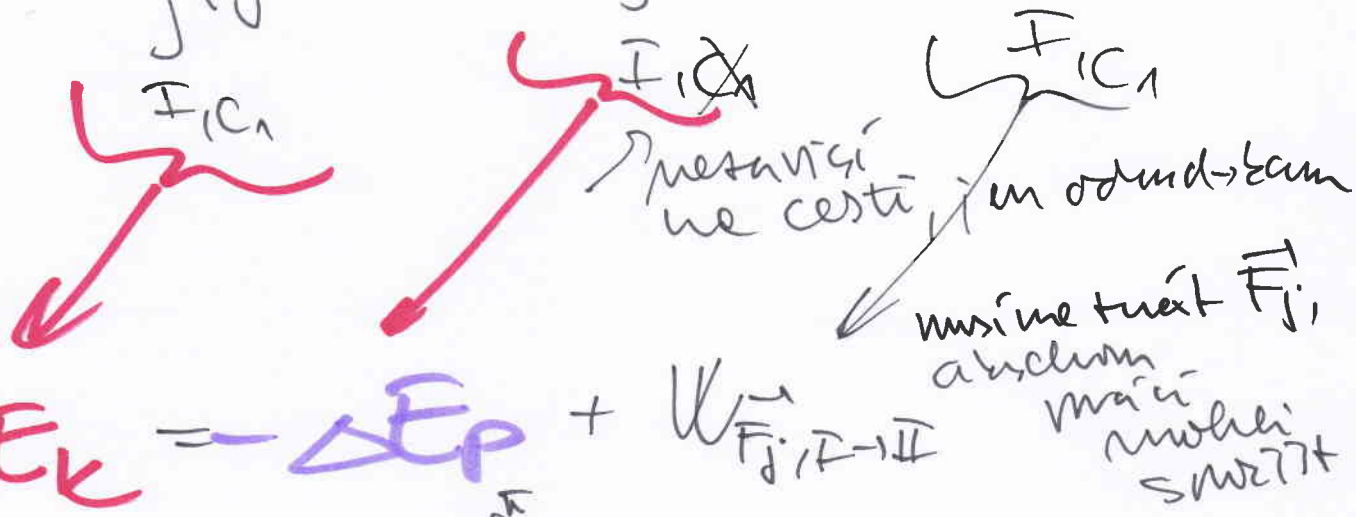 I,C₁
I,C₁
I,C₁
nezávisí
na cestě, jen odkud→kam
musíme znát F⃗j,
abychom
práci
mohli
Eₖ = -ΔEₚ + W F⃗j, I→II